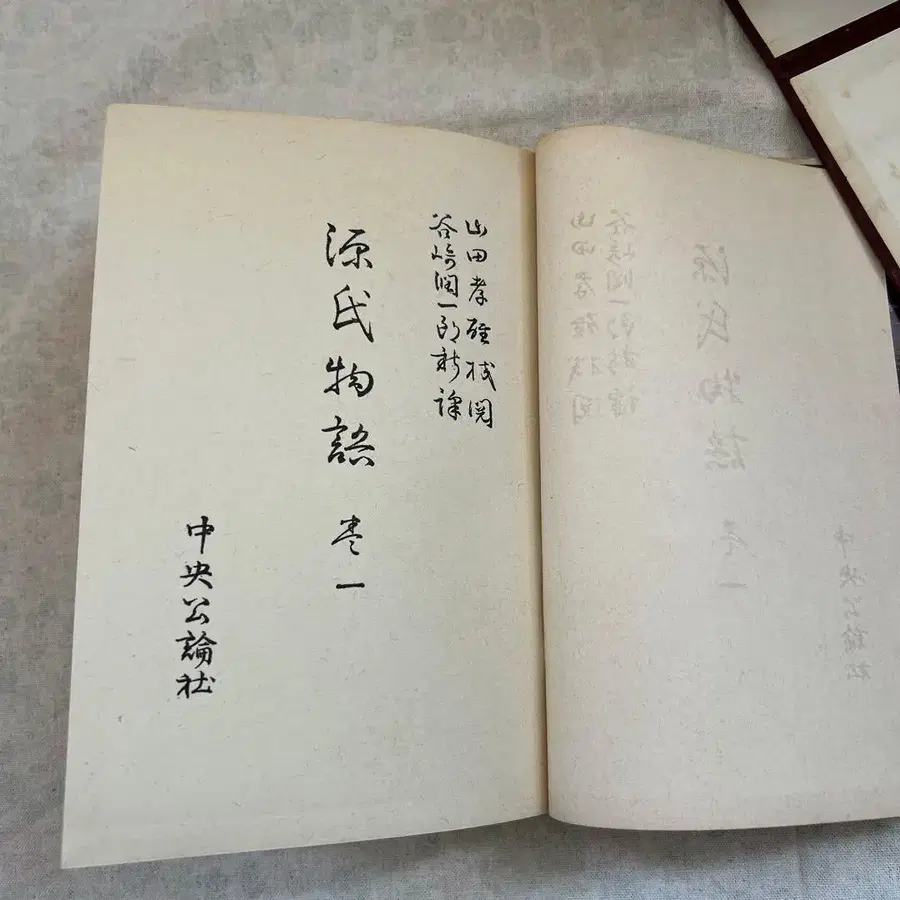 山田孝雄校閲
谷崎潤一郎新譯
源氏物語 巻一
中央公論社